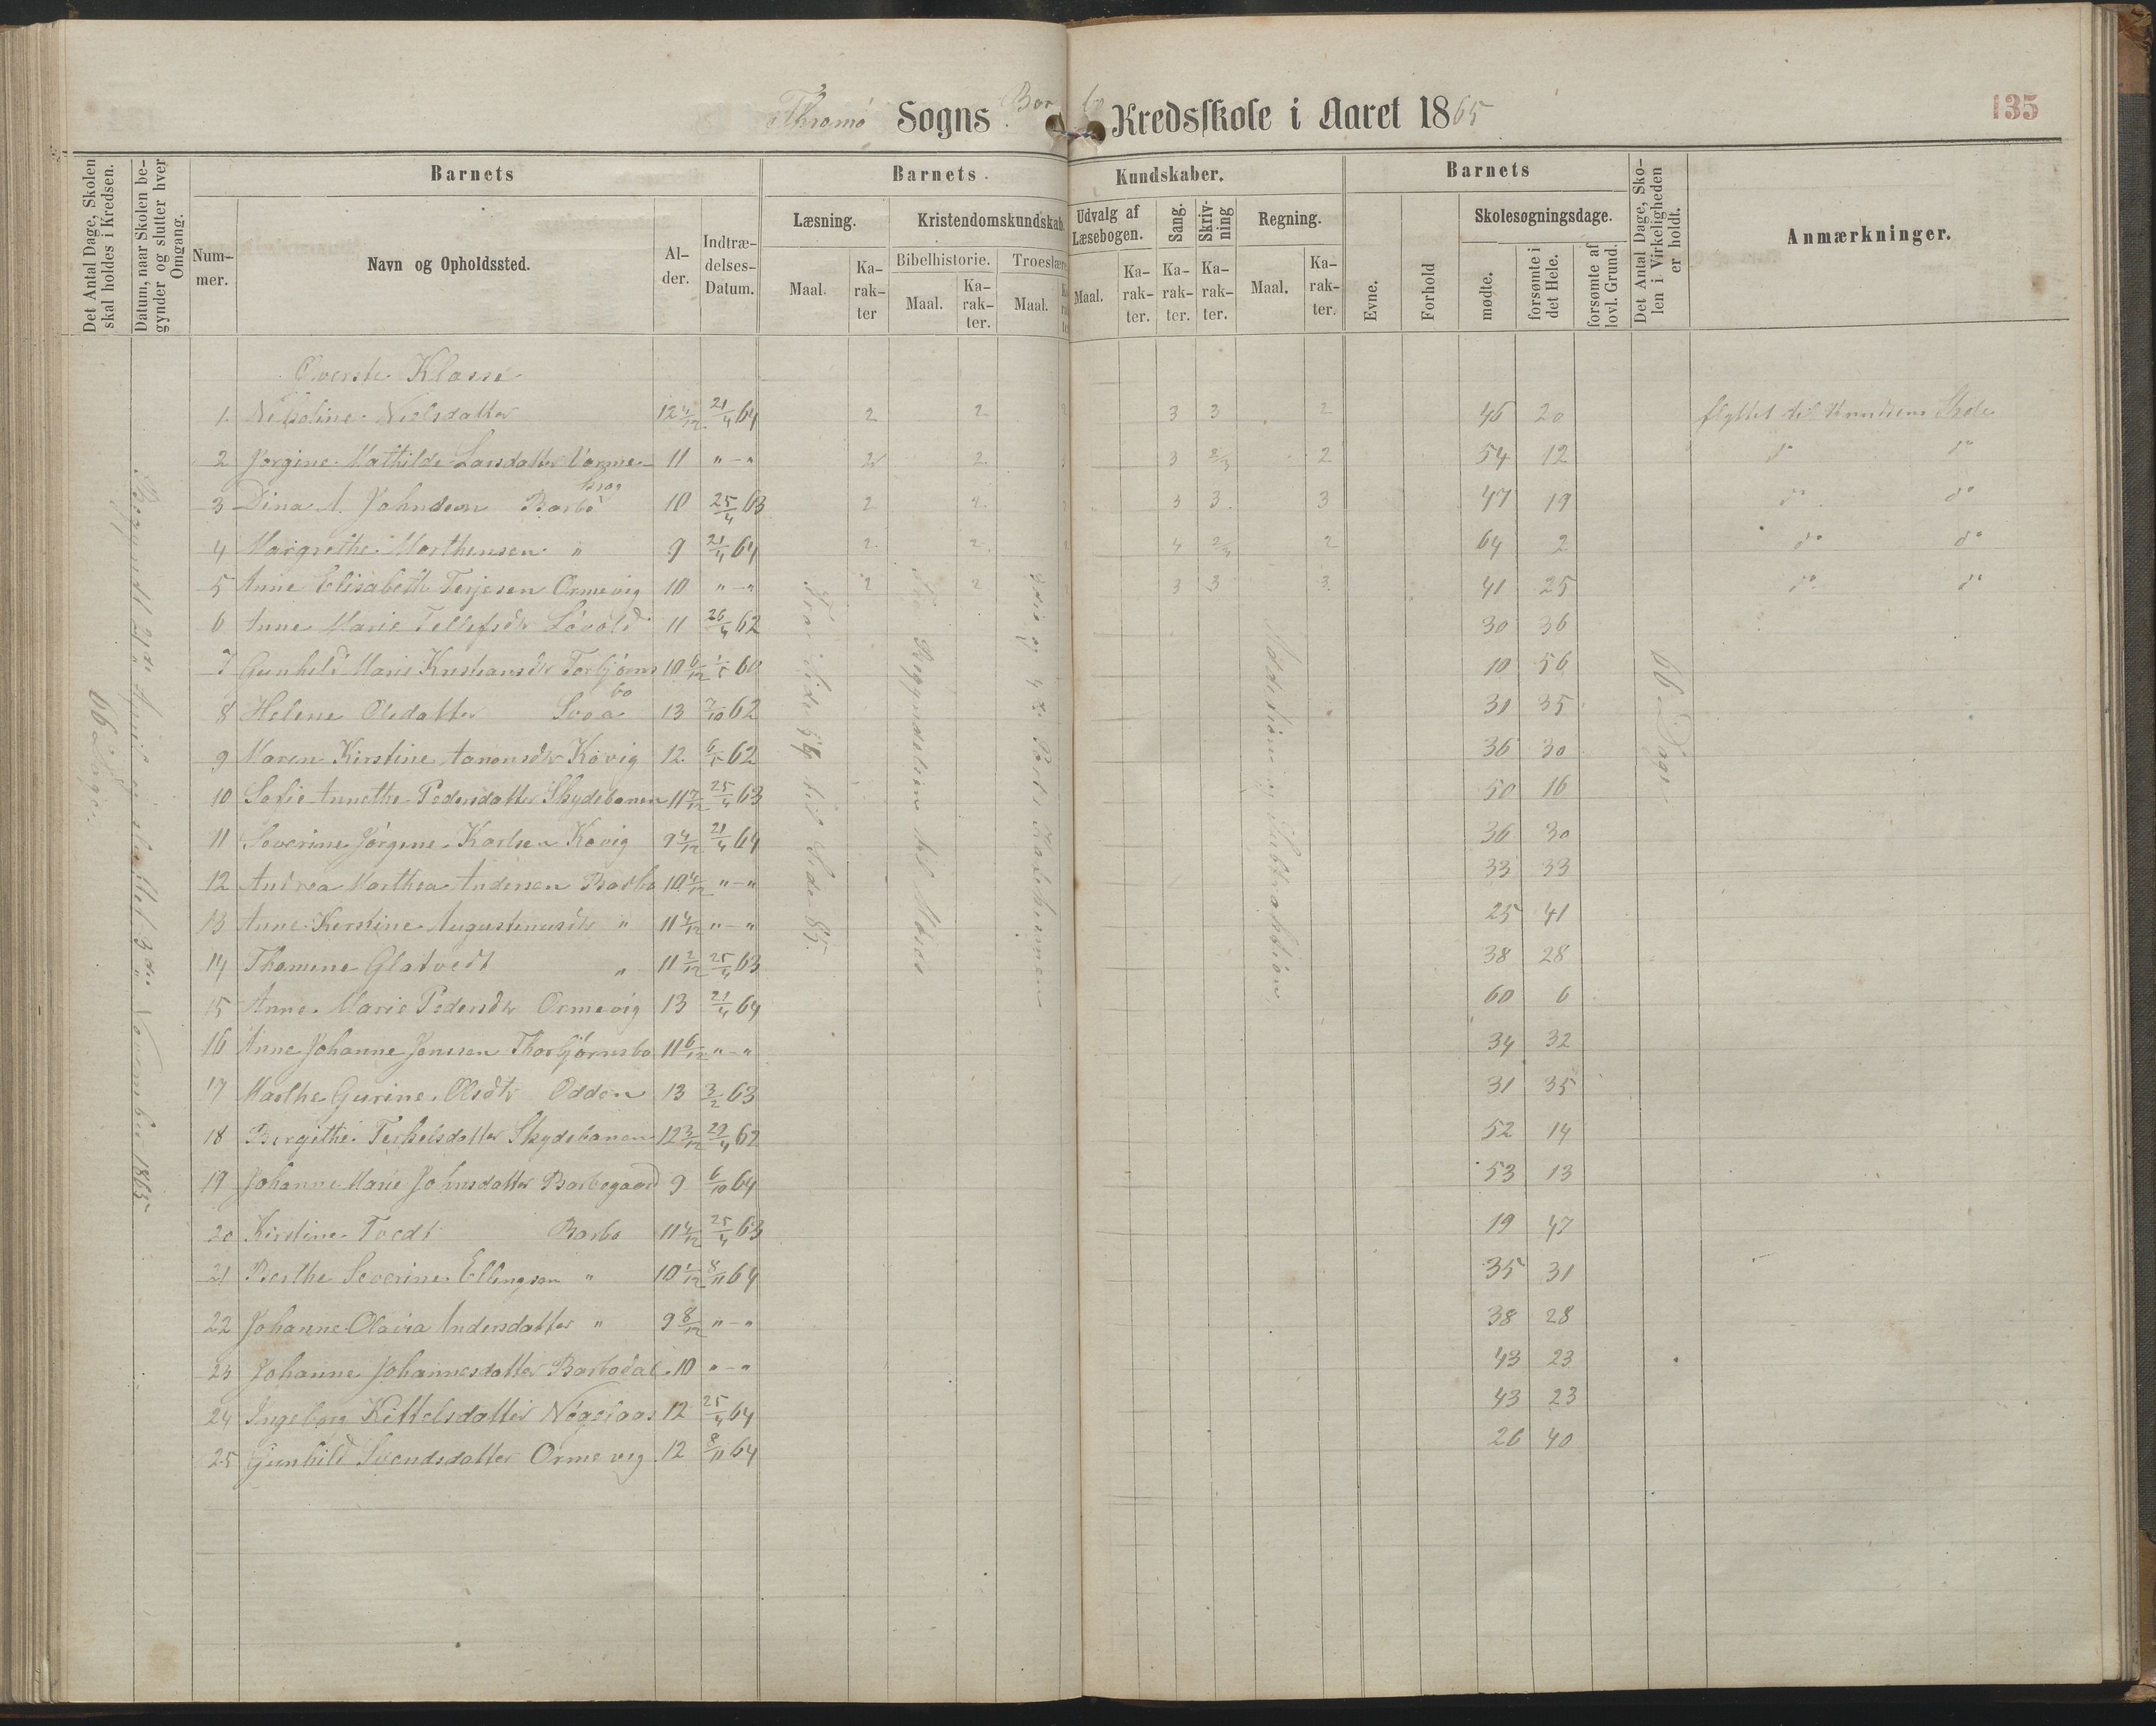 Thromø Sogns Barbo Kredsskole i Aaret 1865
135
Det Antal Dage, Skolen skal holdes i Kredsen.
Datum, naar Skolen begynder og slutter hver Omgang.
Barnets
Barnets
Kundskaber.
Barnets
Det Antal Dage, Skolen i Virkeligheden er holdt.
Anmærkninger.
Nummer.
Navn og Opholdssted.
Alder.
Indtrædelses-Datum.
Læsning.
Kristendomskundskab.
Udvalg af Læsebogen.
Sang.
Skrivning
Regning.
Evne.
Forhold
Skolesøgningsdage.
Maal.
Karakter
Bibelhistorie.
Troeslære
Maal.
Karakter.
Maal.
Maal.
Karakter.
Karakter.
Karakter.
Maal.
Karakter.
mødte.
forsømte i det Hele.
forsømte af lovl. Grund.
66 Dage.
Begyndt 21de April og sluttet 3die November 1865
Fra Side til Side 85.
Fra Begyndelsen til Moses
Addition og Subtraktion
66 Dage
Øverste Klasse
1. Nikoline Nielsdatter 12 4/12 21/4 64 2 2 3 3 2 46 20 flyttet til Knudsens Skole
2 Jørgine Mathilde Larsdatter 11 "-" 2 2 3 2/3 2 54 12 do do
3 Dina A. Johndsen Barbo 10 25/4 63 2 2 3 3 3 47 19 do do
4 Margrethe Marthensen " 9 21/4 64 2 2 4 2/3 2 64 2 do do
5 Anne Elisabeth Terjesen Ormevig 10 "-" 2 2 3 3 3 41 25 do do
6 Anne Marie Tellefsdtr Løvold 11 26/4 62 30 36
7 Gunhild Marie Kristiansdtr Torbjørnsbo 10 6/12 1/5 60 10 56
8 Helene Olsdatter Svaa 13 7/10 62 31 35
9 Maren Kirstine Aanonsdtr Kovig 12 6/5 62 36 30
10 Sofie Annethe Pedersdatter Skydebanen 11 7/12 25/4 63 50 16
11 Severine Jørgine Karlsen Kovig 9 4/12 21/4 64 36 30
12 Andrea Marthea Andersen Barbo 10 4/12 "-" 33 33
13 Anne Kerstine Augustinusdtr " 11 4/12 "-" 25 41
14 Thomine Glatvedt " 11 2/12 25/4 63 38 28
15 Anne Marie Pedersdtr Ormevig 13 21/4 64 60 6
16 Anne Johanne Jensen Thorbjørnsbo 11 6/12 "-" 34 32
17 Marthe Gurine Olsdtr Odden 13 3/2 63 31 35
18 Bergithe Terkelsdatter Skydebanen 12 3/12 29/4 62 52 14
19 Johanne Marie Johnsdatter Barbogaard 9 6/10 64 53 13
20 Kirstine Tvedt Barbo 11 4/12 25/4 63 19 47
21 Berthe Severine Ellingsen " 10 1/12 8/11 64 35 31
22 Johanne Olavia Andersdatter " 9 8/12 "-" 38 28
23 Johanne Johannesdatter Barbodal 10 "-" 43 23
24 Ingeborg Kittelsdatter 12 25/4 64 43 23
25 Gunhild Svendsdatter Ormevig 12 8/11 64 26 40